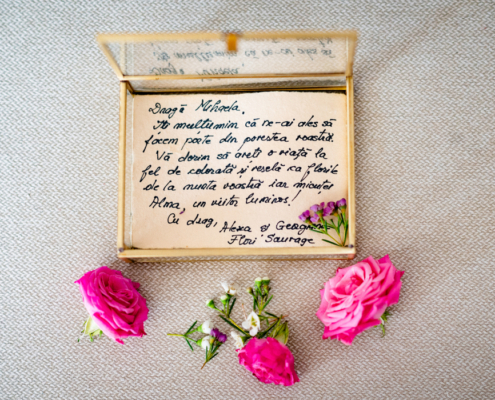 Dragă Mihaela,
Îți mulțumim că ne-ai ales să
facem parte din povestea voastră.
Vă dorim să aveți o viață la
fel de colorată și veselă ca florile
de la nunta voastră iar micuței
Alma, un viitor luminos!
Cu drag,
Alexa și Georgiana
Flori Sauvage